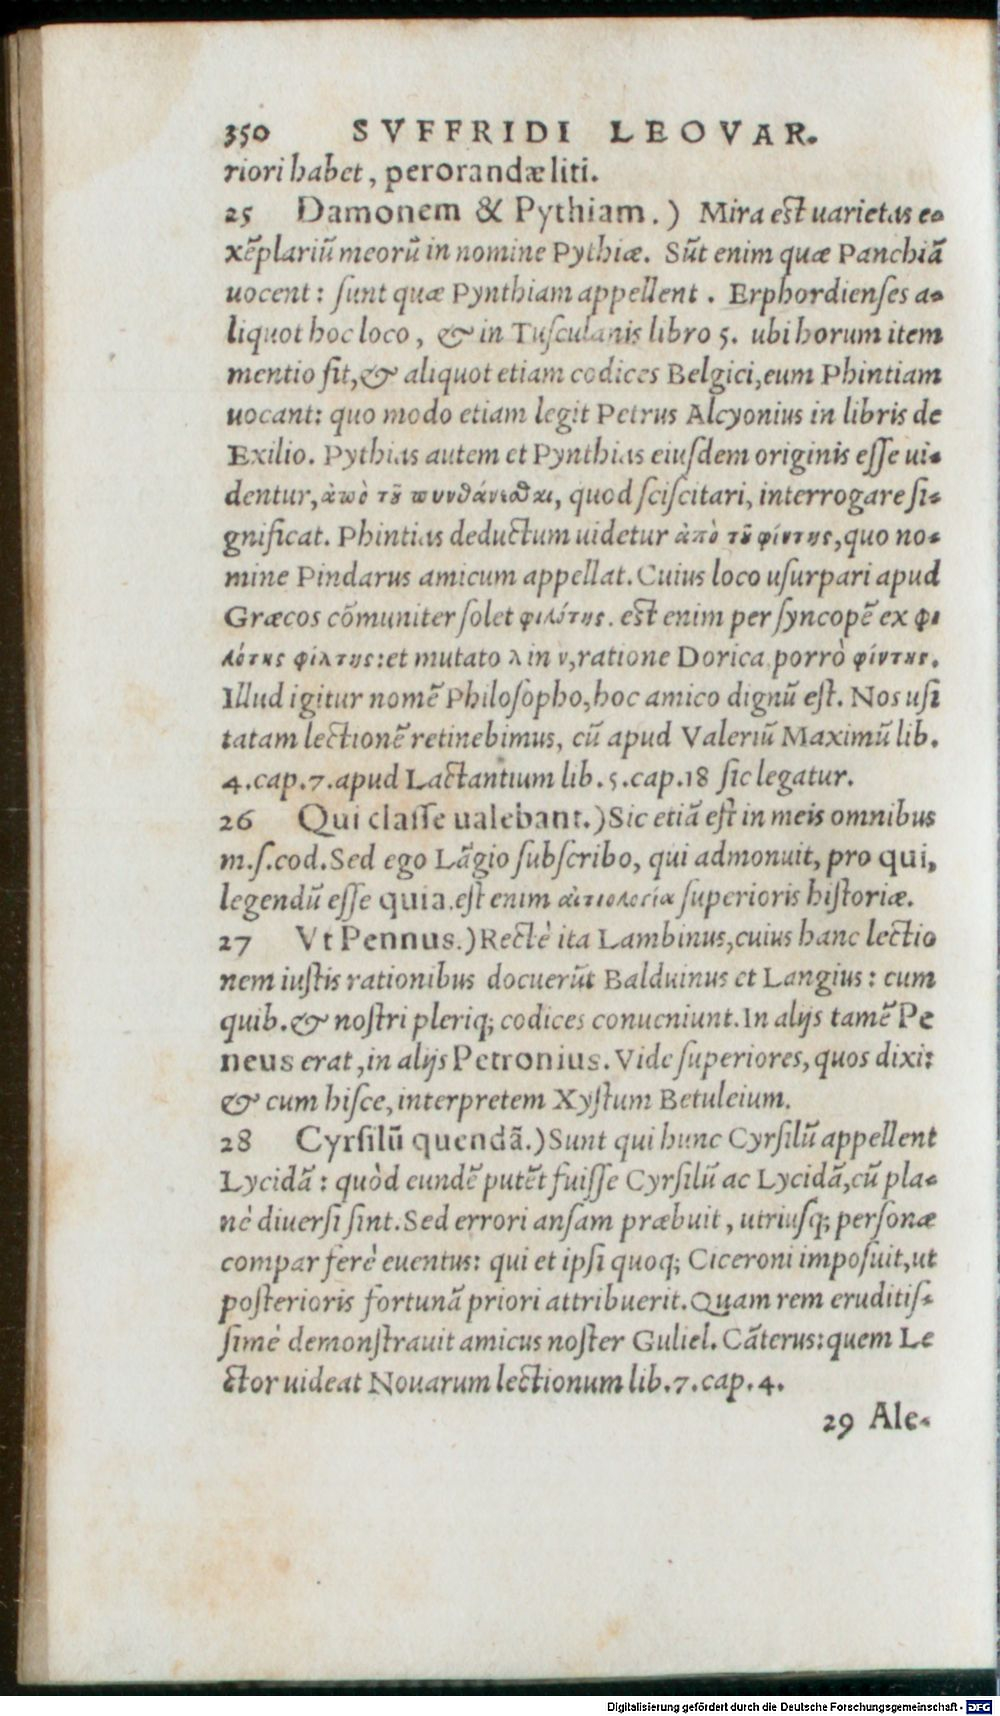 350 SVFFRIDI LEOVAR.
riori habet, perorandæ liti.
25 Damonem & Pythiam.) Mira est uarietas e-
xẽplariũ meorũ in nomine Pythiæ. Sũt enim quæ Panchiã
uocent: sunt quæ Pynthiam appellent. Erphordienses a-
liquot hoc loco, & in Tusculanis libro 5. ubi horum item
mentio fit, & aliquot etiam codices Belgici, eum Phintiam
uocant: quo modo etiam legit Petrus Alcyonius in libris de
Exilio. Pythias autem et Pynthias eiusdem originis esse ui-
dentur, ἀπὸ τοῦ πυνθάνεσθαι, quod sciscitari, interrogare si-
gnificat. Phintias deductum uidetur ἀπὸ τοῦ φίντης, quo no-
mine Pindarus amicum appellat. Cuius loco usurpari apud
Græcos cõmuniter solet φιλότης. est enim per syncopẽ ex φι
λότης φίλτης: et mutato λ in ν, ratione Dorica, porrò φίντης.
Illud igitur nomẽ Philosopho, hoc amico dignũ est. Nos usi
tatam lectionẽ retinebimus, cũ apud Valeriũ Maximũ lib.
4. cap. 7. apud Lactantium lib. 5. cap. 18 sic legatur.
26 Qui classe ualebant.) Sic etiã est in meis omnibus
m. s. cod. Sed ego Lãgio subscribo, qui admonuit, pro qui,
legendũ esse quia. est enim αἰτιολογία superioris historiæ.
27 Vt Pennus.) Rectè ita Lambinus, cuius hanc lectio
nem iustis rationibus docuerũt Balduinus et Langius: cum
quib. & nostri pleriq; codices conueniunt. In alijs tamẽ Pe
neus erat, in alijs Petronius. Vide superiores, quos dixi:
& cum hisce, interpretem Xystum Betuleium.
28 Cyrsilũ quendã.) Sunt qui hunc Cyrsilũ appellent
Lycidã: quòd eundẽ putẽt fuisse Cyrsilũ ac Lycidã, cũ pla-
nè diuersi sint. Sed errori ansam præbuit, utriusq; personæ
compar ferè euentus: qui et ipsi quoq; Ciceroni imposuit, ut
posterioris fortunã priori attribuerit. Quam rem eruditis-
simè demonstrauit amicus noster Guliel. Cãterus: quem Le
ctor uideat Nouarum lectionum lib. 7. cap. 4.
29 Ale-
Digitalisierung gefördert durch die Deutsche Forschungsgemeinschaft - DFG